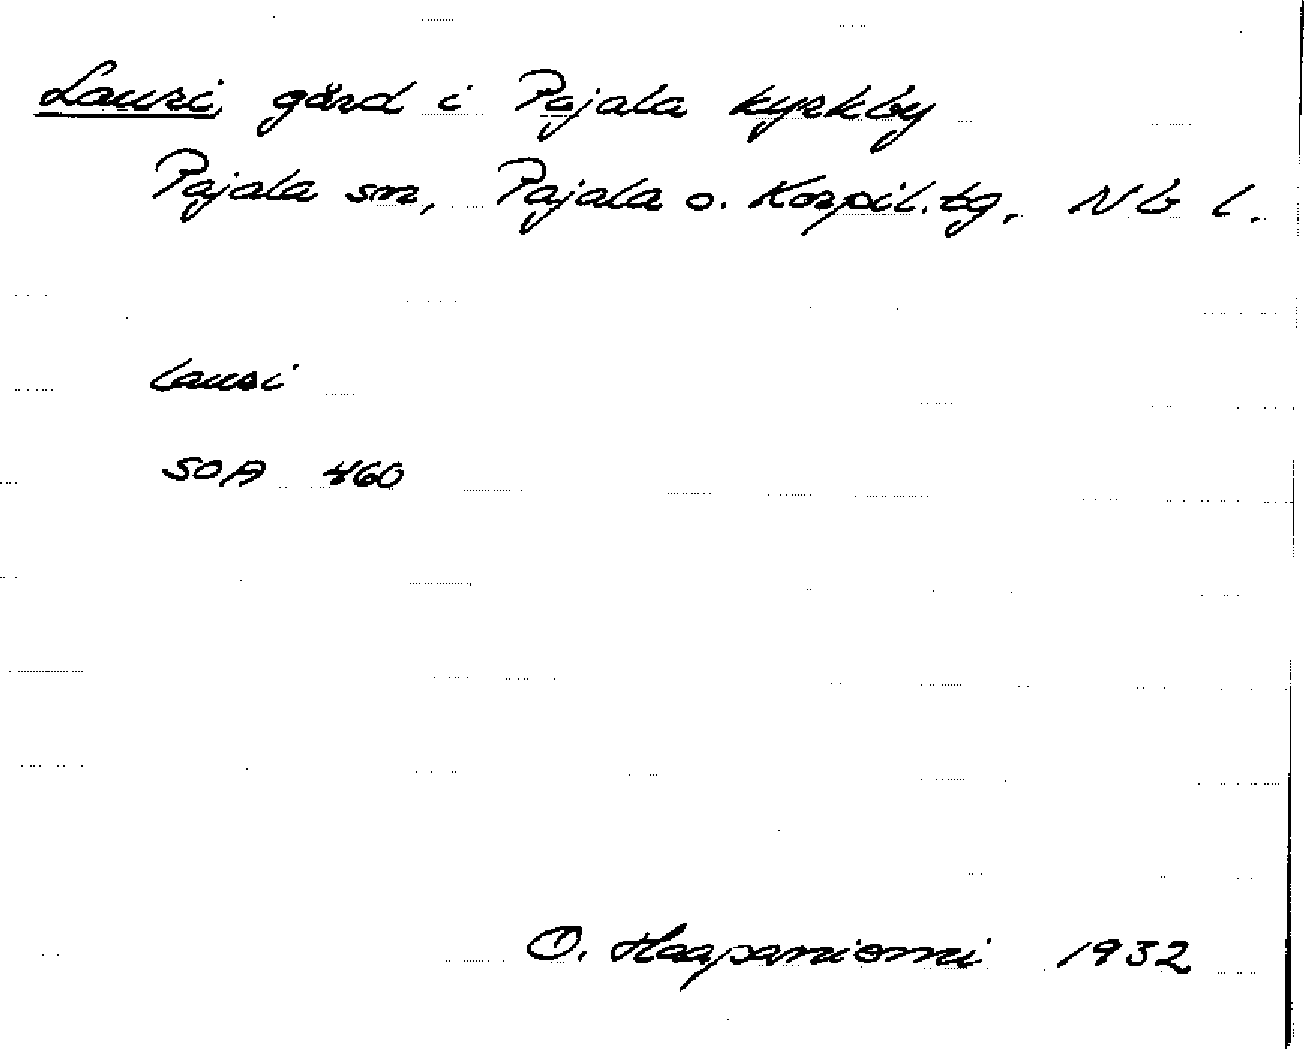 Lauri, gård i Pajala kyrkby
Pajala sn, Pajala o. Korpil. tg, Nb l.
lauri
SOA 460
O. Haapaniemi 1932